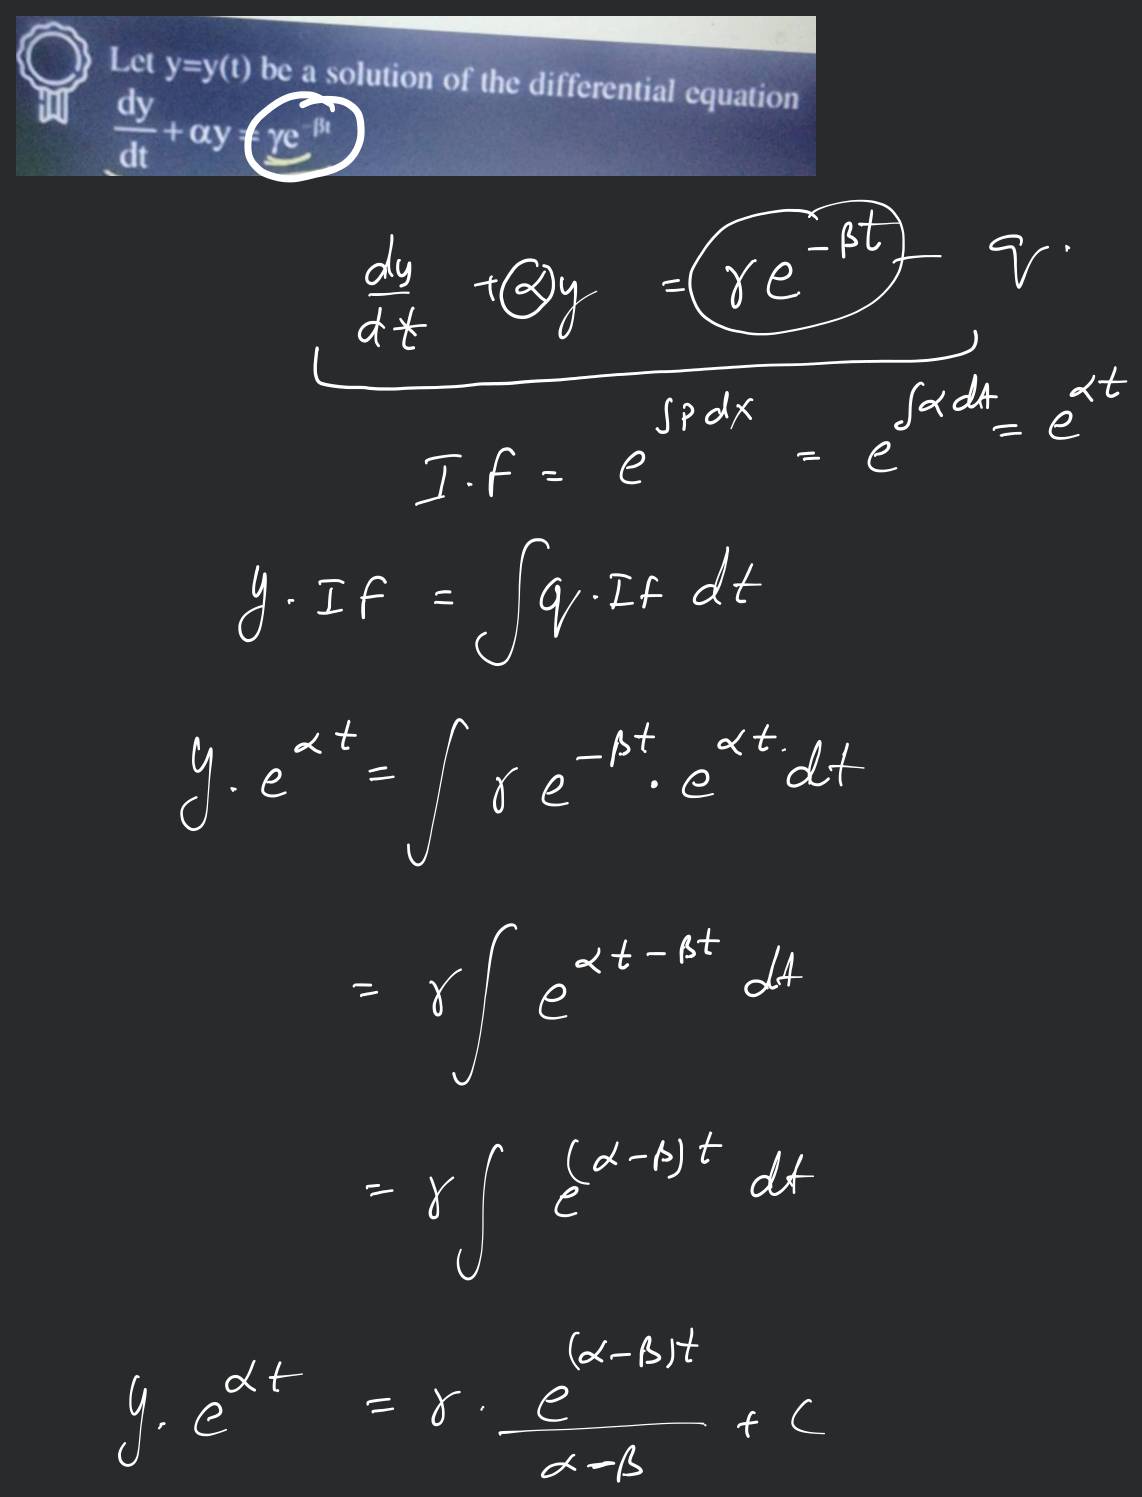 Let y=y(t) be a solution of the differential equation
dy/dt + αy = γe^-βt
dy/dt + αy = γe^-βt — q.
I.f = e^∫pdx = e^∫αdt = e^αt
y.If = ∫q.If dt
y.e^αt = ∫γe^-βt . e^αt. dt
= γ∫e^αt-βt dt
= γ∫e^(α-β)t dt
y.e^αt = γ. e^(α-β)t / α-β + C